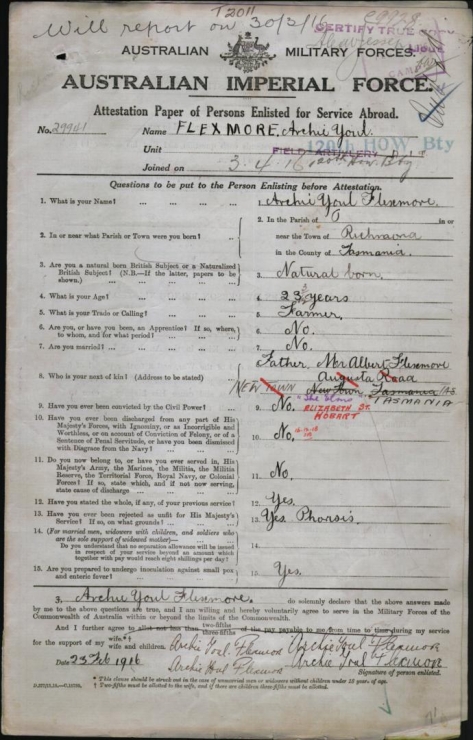 T2011
Will report on 30/2/16
CERTIFY TRUE
AUSTRALIAN MILITARY FORCES.
AUSTRALIAN IMPERIAL FORCE.
Attestation Paper of Persons Enlisted for Service Abroad.
No. 29941 Name FLEXMORE, Archie Youl.
Unit FIELD ARTILLERY 120th HOW. Bty
Joined on 3.4.16 How. Bty
Questions to be put to the Person Enlisting before Attestation.
1. What is your Name? 1. Archie Youl Flexmore.
2. In or near what Parish or Town were you born? 2. In the Parish of in or
near the Town of Richmond
in the County of Tasmania.
3. Are you a natural born British Subject or a Naturalized British Subject? (N.B.—If the latter, papers to be shown.) 3. Natural born.
4. What is your Age? 4. 23 years
5. What is your Trade or Calling? 5. Farmer.
6. Are you, or have you been, an Apprentice? If so, where, to whom, and for what period? 6. No.
7. Are you married? 7. No.
8. Who is your next of kin? (Address to be stated) Father, Mr Albert Flexmore
Augusta Road
NEW TOWN New Town, Tasmania
TASMANIA
9. Have you ever been convicted by the Civil Power? 9. No.
ELIZABETH ST.
HOBART
10. Have you ever been discharged from any part of His Majesty's Forces, with Ignominy, or as Incorrigible and Worthless, or on account of Conviction of Felony, or of a Sentence of Penal Servitude, or have you been dismissed with Disgrace from the Navy? 10. No.
11. Do you now belong to, or have you ever served in, His Majesty's Army, the Marines, the Militia, the Militia Reserve, the Territorial Force, Royal Navy, or Colonial Forces? If so, state which, and if not now serving, state cause of discharge 11. No.
12. Have you stated the whole, if any, of your previous service? 12. Yes.
13. Have you ever been rejected as unfit for His Majesty's Service? If so, on what grounds? 13. Yes.
14. (For married men, widowers with children, and soldiers who are the sole support of widowed mother)—
Do you understand that no separation allowance will be issued in respect of your service beyond an amount which together with pay would reach eight shillings per day? 14.
15. Are you prepared to undergo inoculation against small pox and enteric fever? 15. Yes.
I, Archie Youl Flexmore. do solemnly declare that the above answers made
by me to the above questions are true, and I am willing and hereby voluntarily agree to serve in the Military Forces of the
Commonwealth of Australia within or beyond the limits of the Commonwealth.
And I further agree to allot not less than two-fifths three-fifths of the pay payable to me from time to time during my service
for the support of my wife.*† wife and children.
Archie Youl Flexmor Archie Youl Flexmor
Date 23 Feb 1916 Archie Youl Flexmor Archie Youl Flexmor
Signature of person enlisted.
* This clause should be struck out in the case of unmarried men or widowers without children under 18 years of age.
† Two-fifths must be allotted to the wife, and if there are children three-fifths must be allotted.